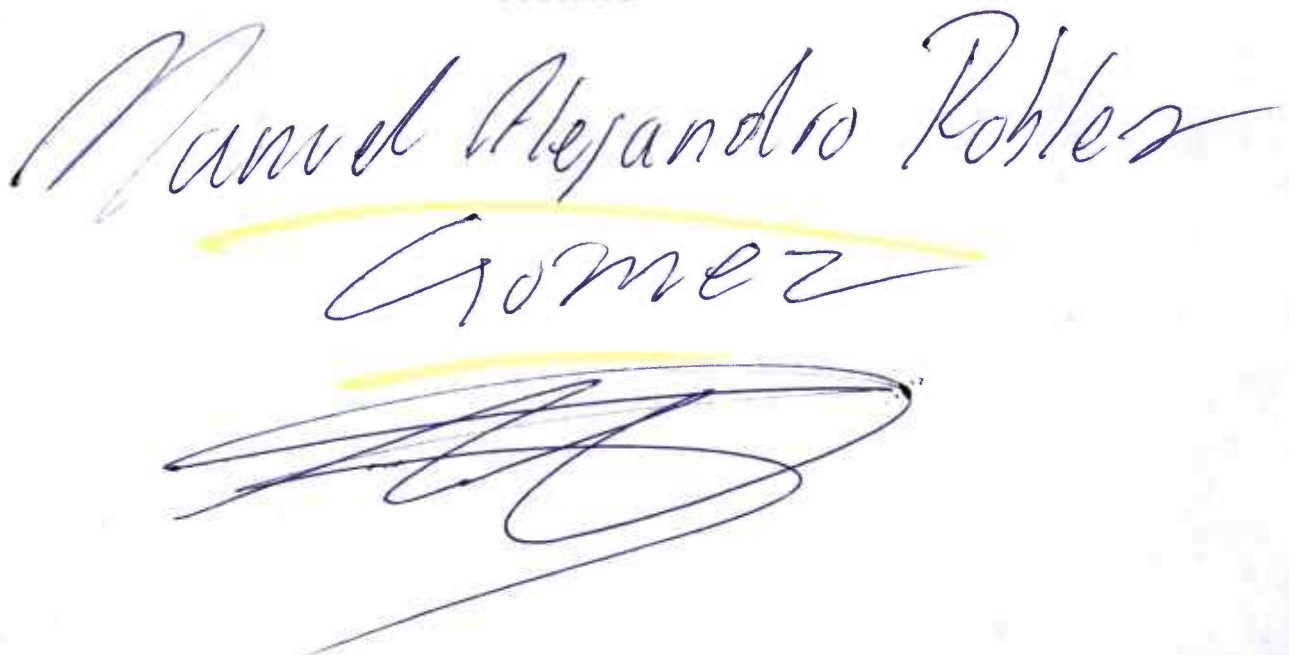 Manuel Alejandro Robles
Gomez